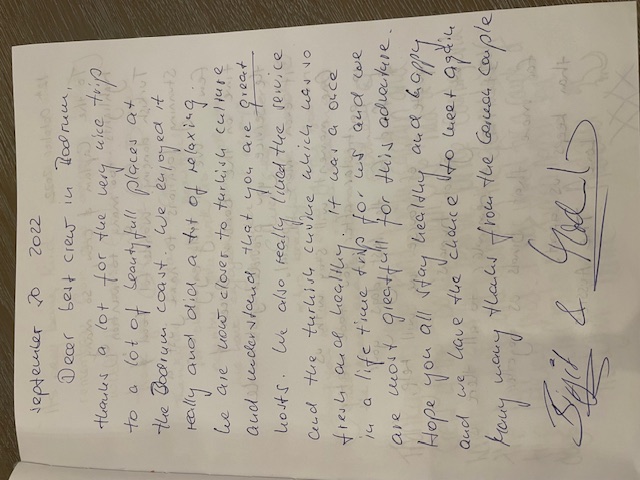 september 20 2022
Dear best crew in Bodrum,
thanks a lot for the very nice trip
to a lot of beautyfull places at
the Bodrum coast. We enjoyed it
really and did a lot of relaxing.
We are now closer to turkish culture
and understand that you are great
hosts. We also really liked the service
and the turkish cuisine which was so
fresh and healthy. It was a once
in a life time trip for us and we
are most greatfull for this adventure.
Hope you all stay healthy and happy
and we have the chance to meet again
Many many thanks from the German couple
&